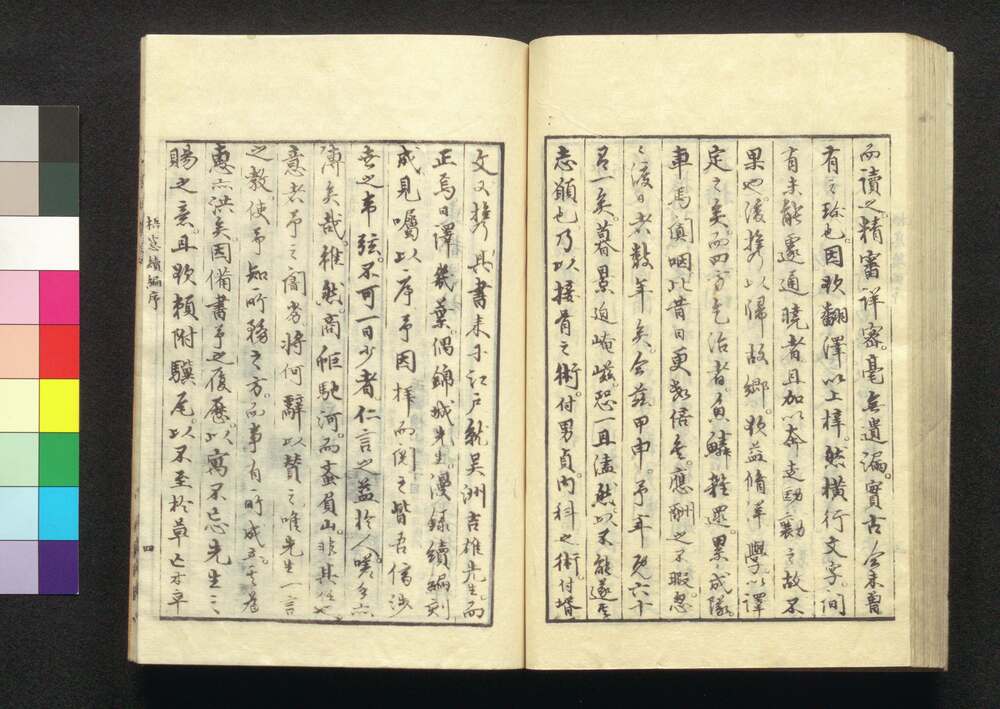 而讀之精審詳密毫無遺漏實古今未曾
有之珍也因欲翻譯以上梓然橫行文字間
有未能遽通曉者且加以奔走劻勷之故不
果也後携以歸故鄉欲益脩羊學以譯
定之矣而四方乞治者魚鱗雜遝累々成隊
車馬闐咽比昔日更數倍矣應酬之不暇忽
々渡日者數年矣今茲甲申予年既六十
有一矣暮景迫崦嵫恐一旦溘然以不能遂
志願也乃以接骨之術付男貞內科之術付壻
文又携其書來于江戸就吳洲吉雄先生而
正焉日譯幾葉偶錦城先生漫錄續編刻
成見囑以序予因擇而閱之皆吾儕涉
世之韋弦不可一日少者仁言之益於人
博矣哉雖然商蚷馳河而蚉負山非其任也
意者予之闇劣將何辭以贊之唯先生一言
之教使予知所務之方而事有所成
惠亦洪矣因備書予之履歷以寓不忘先生之
賜之意且欲頼附驥尾以不至於草亡木卒
梧窓續編序
四